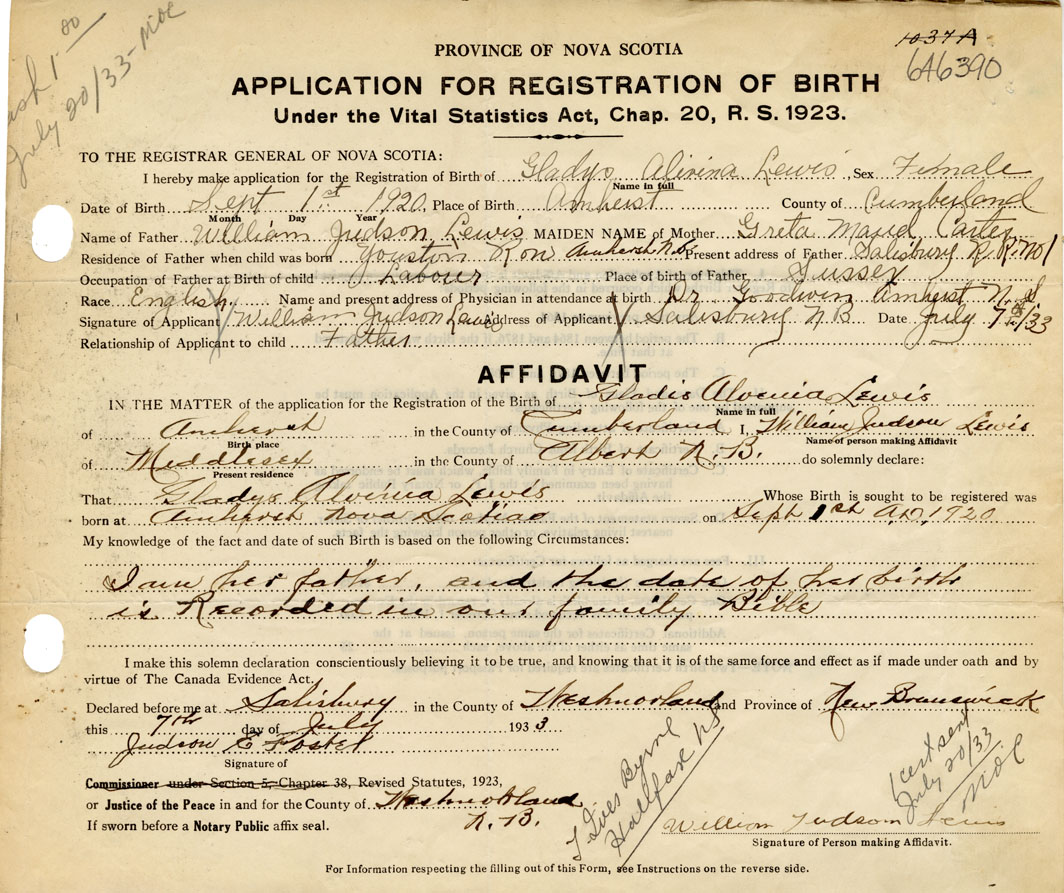 Cash 1.00
July 20/33 - MOE
1037A
646390
PROVINCE OF NOVA SCOTIA
APPLICATION FOR REGISTRATION OF BIRTH
Under the Vital Statistics Act, Chap. 20, R. S. 1923.
TO THE REGISTRAR GENERAL OF NOVA SCOTIA:
I hereby make application for the Registration of Birth of Gladys Alivina Lewis, Sex Female
Name in full
Date of Birth Sept 1st 1920, Place of Birth Amherst County of Cumberland
Month Day Year
Name of Father William Judson Lewis MAIDEN NAME of Mother Greta Maud Carter
Residence of Father when child was born Amherst N.S. Present address of Father Salisbury R.R. No 1
Occupation of Father at Birth of child Labour Place of birth of Father Sussex
Race English Name and present address of Physician in attendance at birth Dr. Goodwin Amherst N.S
Signature of Applicant William Judson Lewis Address of Applicant Salisbury NB Date July 7th/33
Relationship of Applicant to child Father
AFFIDAVIT
IN THE MATTER of the application for the Registration of the Birth of Gladis Alvenia Lewis
Name in full
of Amherst in the County of Cumberland I, William Judson Lewis
Birth place Name of person making Affidavit
of Middlesex in the County of Albert N.B. do solemnly declare:
Present residence
That Gladys Alvinia Lewis Whose Birth is sought to be registered was
born at Amherst Nova Scotia on Sept 1st A.D. 1920
My knowledge of the fact and date of such Birth is based on the following Circumstances:
I am her father, and the date of her birth
is Recorded in our family Bible
I make this solemn declaration conscientiously believing it to be true, and knowing that it is of the same force and effect as if made under oath and by
virtue of The Canada Evidence Act.
Declared before me at Salisbury in the County of Westmorland and Province of New Brunswick
this 7th day of July 1933
Judson E Foster
Signature of
Commissioner under Section 5, Chapter 38, Revised Statutes, 1923,
or Justice of the Peace in and for the County of Westmorland
If sworn before a Notary Public affix seal. N.B.
Ives Byrne
Halifax NS
1 cert sent
July 20/33
MOE
William Judson Lewis
Signature of Person making Affidavit.
For Information respecting the filling out of this Form, see Instructions on the reverse side.